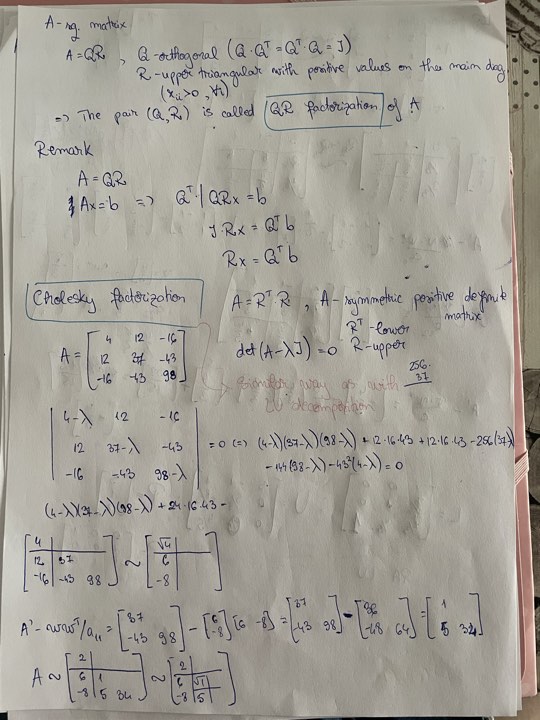 A-sq. matrix
A = QR , Q-orthogonal (Q·Qᵀ = Qᵀ·Q = I)
R-upper triangular with positive values on the main diag.
(rᵢᵢ>0, ∀i)
=> The pair (Q,R) is called QR factorization of A
Remark
A = QR
Ax=b => Qᵀ·| QRx = b
I Rx = Qᵀb
Rx = Qᵀb
Cholesky factorization A = RᵀR , A-symmetric positive definite matrix
Rᵀ-lower
R-upper
A = [ 4 12 -16
12 37 -43
-16 -43 98 ]
det(A-λI) = 0
similar way as with
LU decomposition
256·
37
| 4-λ 12 -16
12 37-λ -43
-16 -43 98-λ | = 0 (=) (4-λ)(37-λ)(98-λ) + 12·16·43 + 12·16·43 - 256(37λ)
- 144(98-λ) - 43²(4-λ) = 0
(4-λ)(37-λ)(98-λ) + 24·16·43 -
[ 4
12 37
-16 -43 98 ] ~ [ √4
6
-8 ]
A' - wwᵀ/a₁₁ = [ 37
-43 98 ] - [ 6
-8 ] [6 -8] = [ 37
-43 98 ] - [ 36
-48 64 ] = [ 1
5 34 ]
A ~ [ 2
6 1
-8 5 34 ] ~ [ 2
6 √1
-8 5 ]